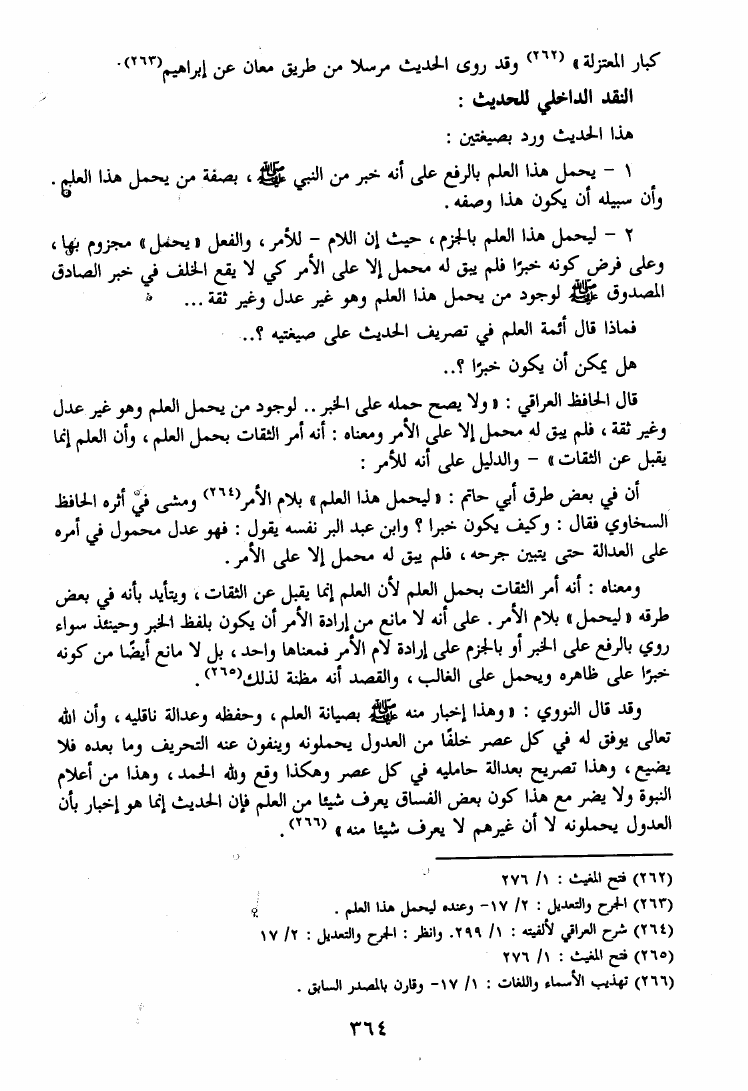 كبار المعتزلة » (٢٦٢) وقد روى الحديث مرسلا من طريق معان عن إبراهيم(٢٦٣).
النقد الداخلي للحديث :
هذا الحديث ورد بصيغتين :
١ – يحمل هذا العلم بالرفع على أنه خبر من النبي ﷺ ، بصفة من يحمل هذا العلم .
وأن سبيله أن يكون هذا وصفه .
٢ – ليحمل هذا العلم بالجزم ، حيث إن اللام – للأمر ، والفعل « يحمل » مجزوم بها ،
وعلى فرض كونه خبرًا فلم يبق له محمل إلا على الأمر كي لا يقع الخلف في خبر الصادق
المصدوق ﷺ لوجود من يحمل هذا العلم وهو غير عدل وغير ثقة ...
فماذا قال أئمة العلم في تصريف الحديث على صيغتيه ؟..
هل يمكن أن يكون خبرًا ؟..
قال الحافظ العراقي : « ولا يصح حمله على الخبر .. لوجود من يحمل العلم وهو غير عدل
وغير ثقة ، فلم يبق له محمل إلا على الأمر ومعناه : أنه أمر الثقات بحمل العلم ، وأن العلم إنما
يقبل عن الثقات » – والدليل على أنه للأمر :
أن في بعض طرق أبي حاتم : « ليحمل هذا العلم » بلام الأمر(٢٦٤) ومشى في أثره الحافظ
السخاوي فقال : وكيف يكون خبرا ؟ وابن عبد البر نفسه يقول : فهو عدل محمول في أمره
على العدالة حتى يتبين جرحه ، فلم يبق له محمل إلا على الأمر .
ومعناه : أنه أمر الثقات بحمل العلم لأن العلم إنما يقبل عن الثقات ، ويتأيد بأنه في بعض
طرقه « ليحمل » بلام الأمر . على أنه لا مانع من إرادة الأمر أن يكون بلفظ الخبر وحينئذ سواء
روي بالرفع على الخبر أو بالجزم على إرادة لام الأمر فمعناها واحد ، بل لا مانع أيضًا من كونه
خبرًا على ظاهره ويحمل على الغالب ، والقصد أنه مظنة لذلك(٢٦٥) .
وقد قال النووي : « وهذا إخبار منه ﷺ بصيانة العلم ، وحفظه وعدالة ناقليه ، وأن الله
تعالى يوفق له في كل عصر خلفًا من العدول يحملونه وينفون عنه التحريف وما بعده فلا
يضيع ، وهذا تصريح بعدالة حامليه في كل عصر وهكذا وقع ولله الحمد ، وهذا من أعلام
النبوة ولا يضر مع هذا كون بعض الفساق يعرف شيئا من العلم فإن الحديث إنما هو إخبار بأن
العدول يحملونه لا أن غيرهم لا يعرف شيئا منه » (٢٦٦) .
(٢٦٢) فتح المغيث : ١/ ٢٧٦
(٢٦٣) الجرح والتعديل : ٢/ ١٧– وعنده ليحمل هذا العلم .
(٢٦٤) شرح العراقي لألفيته : ١/ ٢٩٩. وانظر : الجرح والتعديل : ٢/ ١٧
(٢٦٥) فتح المغيث : ١/ ٢٧٦
(٢٦٦) تهذيب الأسماء واللغات : ١/ ١٧– وقارن بالمصدر السابق .
٣٦٤